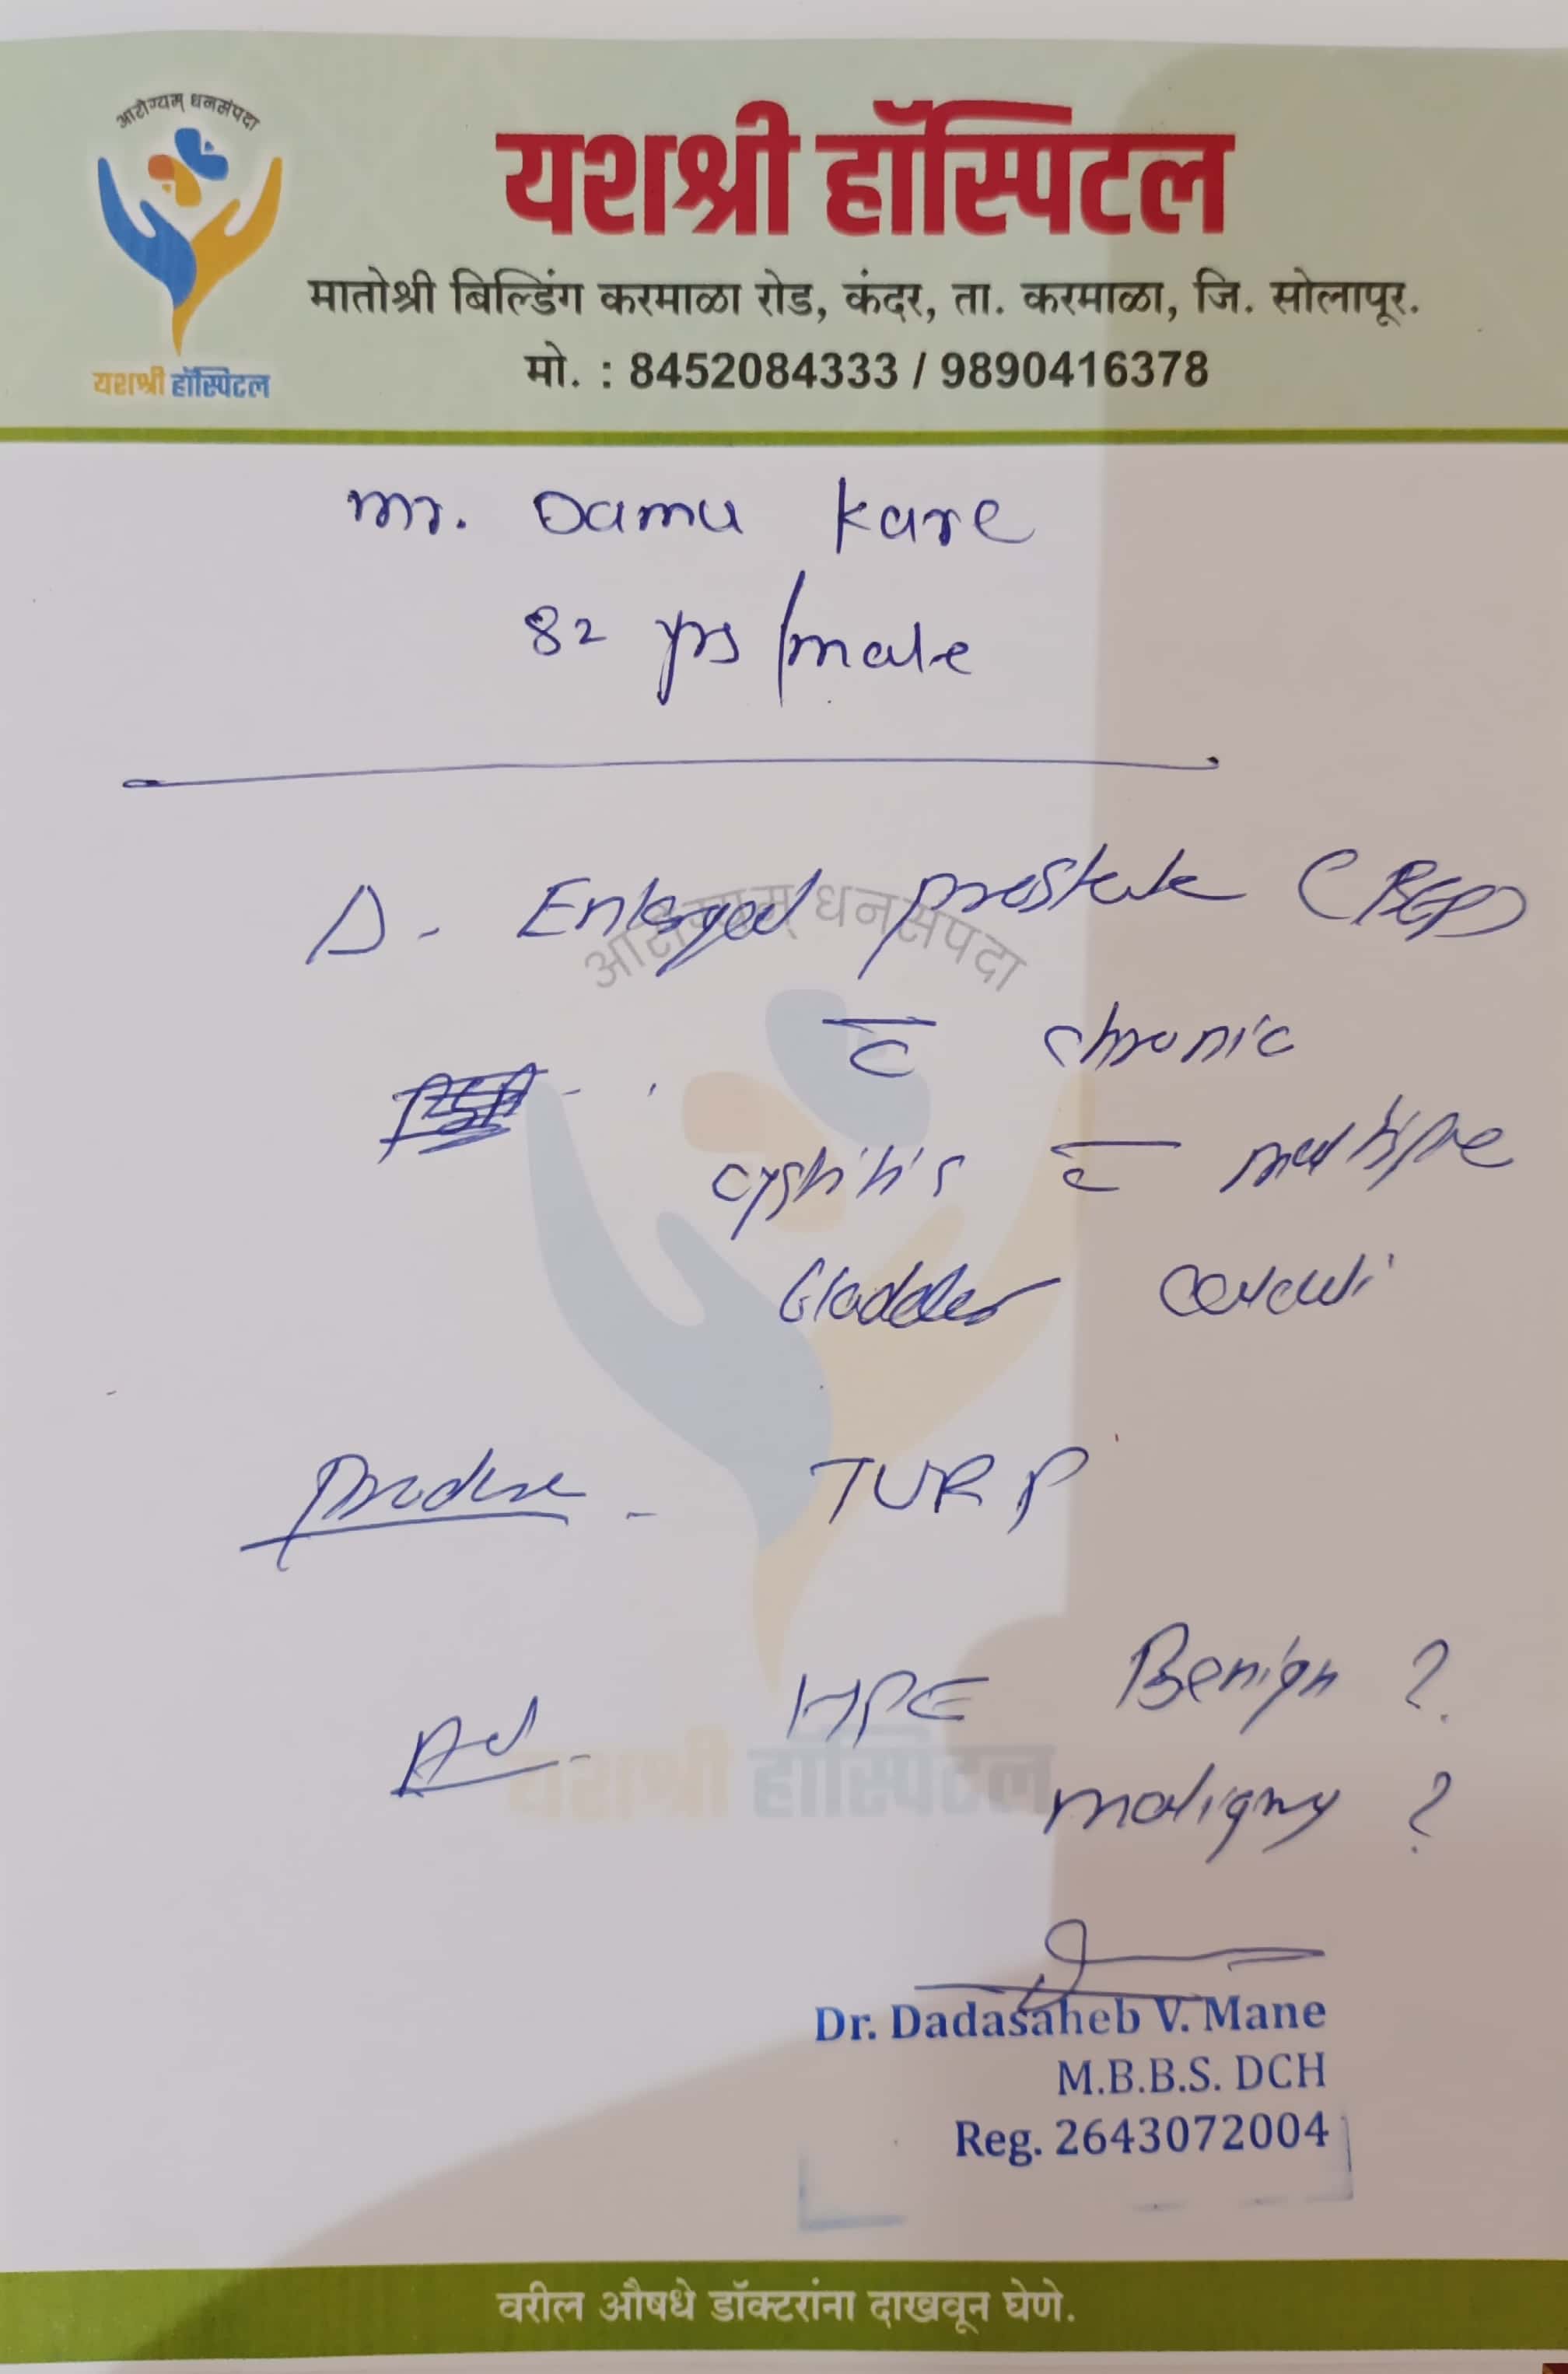 आरोग्यम् धनसंपदा
यशश्री हॉस्पिटल
यशश्री हॉस्पिटल
मातोश्री बिल्डिंग करमाळा रोड, कंदर, ता. करमाळा, जि. सोलापूर.
मो. : 8452084333 / 9890416378
mr. Damu Kare
82 yrs/male
Δ - Enlarged prostate (BEP)
c̅ chronic
cystitis c̅ multiple
bladder calculi
- TURP
Adv - HPE Benign ?
maligny ?
आरोग्यम् धनसंपदा
यशश्री हॉस्पिटल
Dr. Dadasaheb V. Mane
M.B.B.S. DCH
Reg. 2643072004
वरील औषधे डॉक्टरांना दाखवून घेणे.